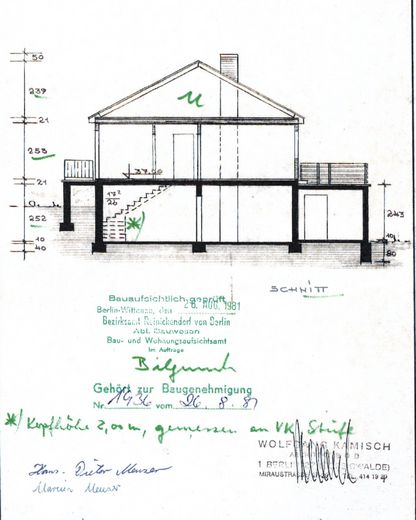 50
239
u
21
253
37.00
21
17²
26
*
252
243
10
40
80
SCHNITT
Bauaufsichtlich geprüft
Berlin-Wittenau, den 26. AUG. 1981
Bezirksamt Reinickendorf von Berlin
Abt. Bauwesen
Bau- und Wohnungsaufsichtsamt
Im Auftrage
Gehört zur Baugenehmigung
Nr. 1936 vom 26. 8. 81
*/ Kopfhöhe 2,00 m, gemessen an VK Stufe
WOLFGANG KAMISCH
1 BERLIN
TEL. 414 19
Hans-Dieter Meuser
Marion Meuser